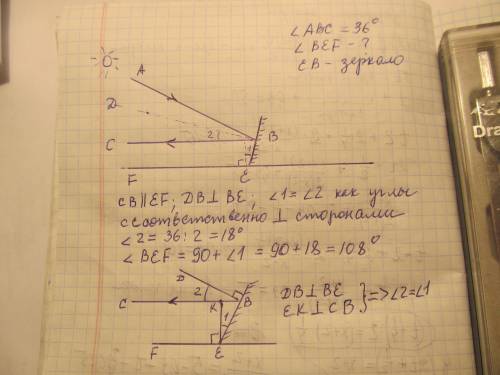 ∠ABC = 36°
∠BEF - ?
EB - зеркало
A
D
C
2
B
1
F
E
CB∥EF; DB⊥BE; ∠1=∠2 как углы
с соответственно ⊥ сторонами
∠2 = 36:2 = 18°
∠BEF = 90+∠1 = 90+18 = 108°
D
C
2
K
B
1
F
E
DB⊥BE
EK⊥CB } => ∠2=∠1
Dra